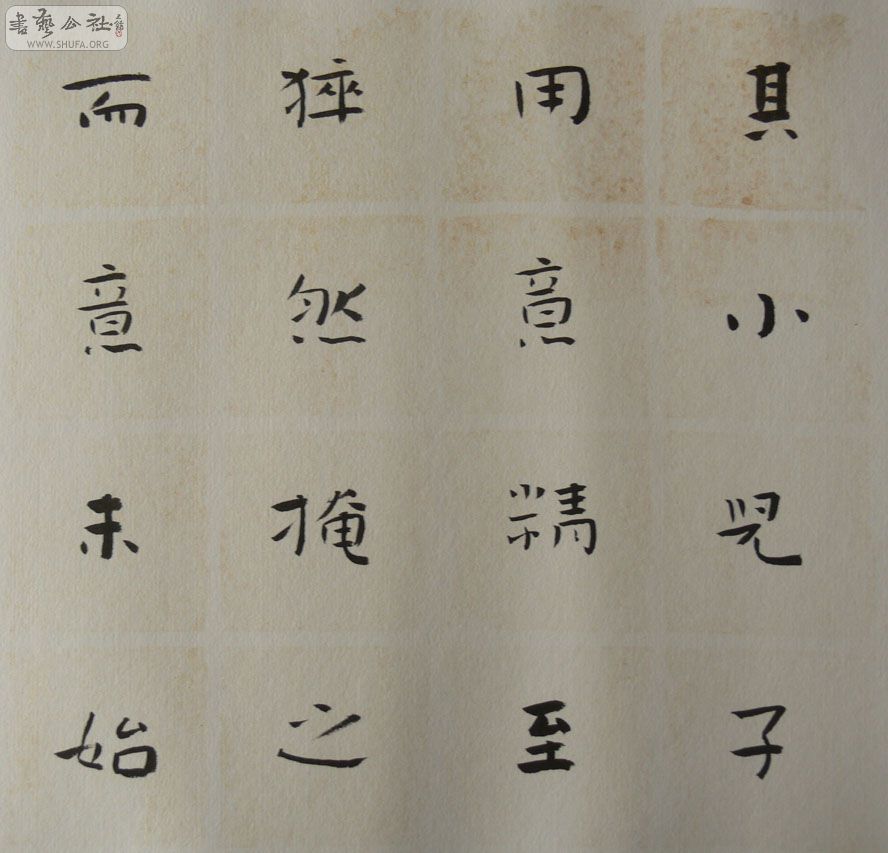 其小兒子
用意精至
猝然掩之
而意未始
書藝公社
WWW.SHUFA.ORG